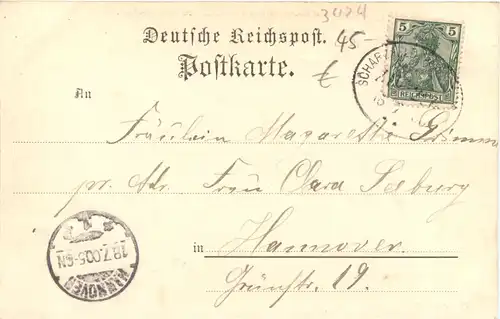 3024
Deutsche Reichspost. 45-
Postkarte. €
5 5
REICHSPOST
An
Fräulein Magarethe Grimm
pr. Adr. Frau Clara Seeburg
in Hannover.
Grünstr. 19.
HANNOVER
18.7.00.5-6N